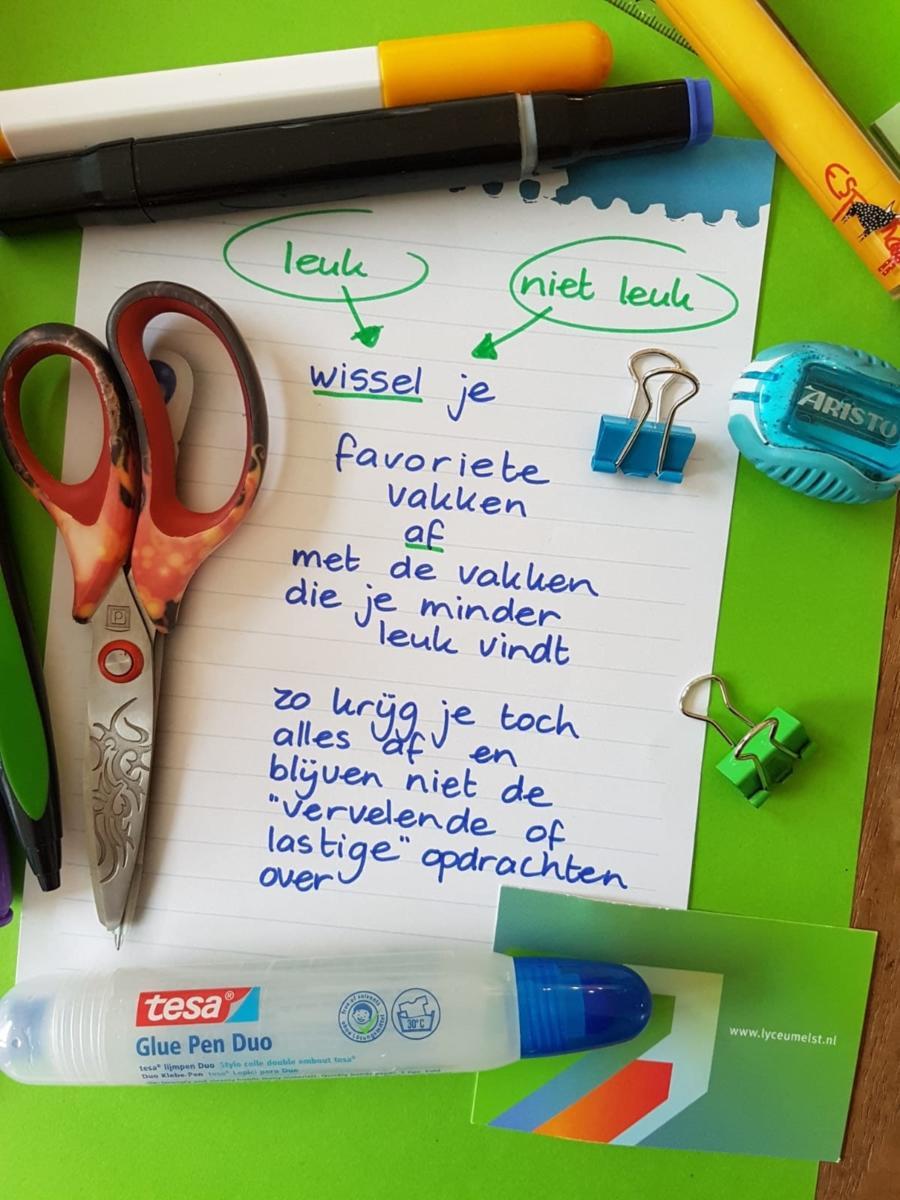 leuk
niet leuk
wissel je
favoriete
vakken
af
met de vakken
die je minder
leuk vindt
zo krijg je toch
alles af en
blijven niet de
"vervelende of
lastige" opdrachten
over
ARISTO
P
tesa®
Glue Pen Duo
tesa® lijmpen Duo Stylo colle double embout tesa®
Duo Klebe-Pen tesa® Lapici para Duo
30°C
www.lyceumelst.nl